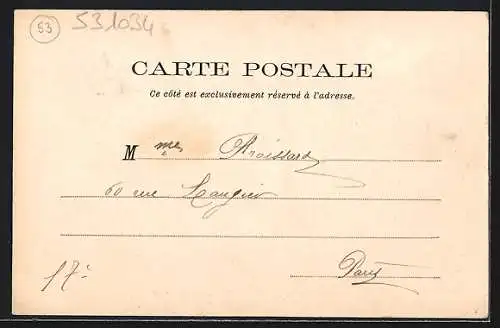 53 531034
CARTE POSTALE
Ce côté est exclusivement réservé à l'adresse.
M mes Froissard
60 rue Laugier
Paris
17e